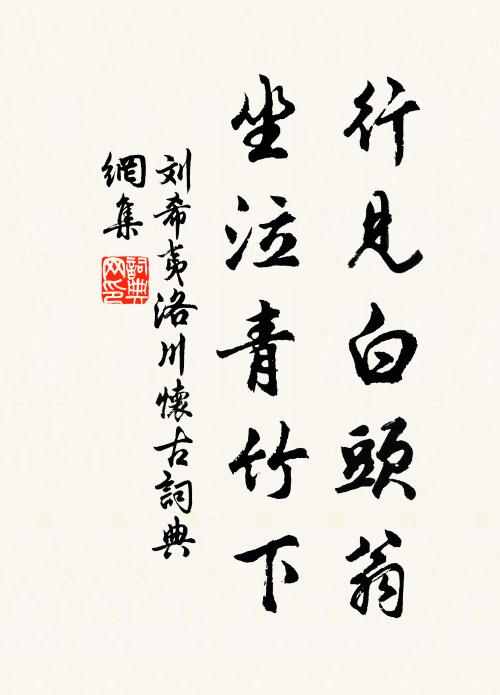 行見白頭翁
坐泣青竹下
刘希夷洛川懷古詞典
網集
詞典
网印